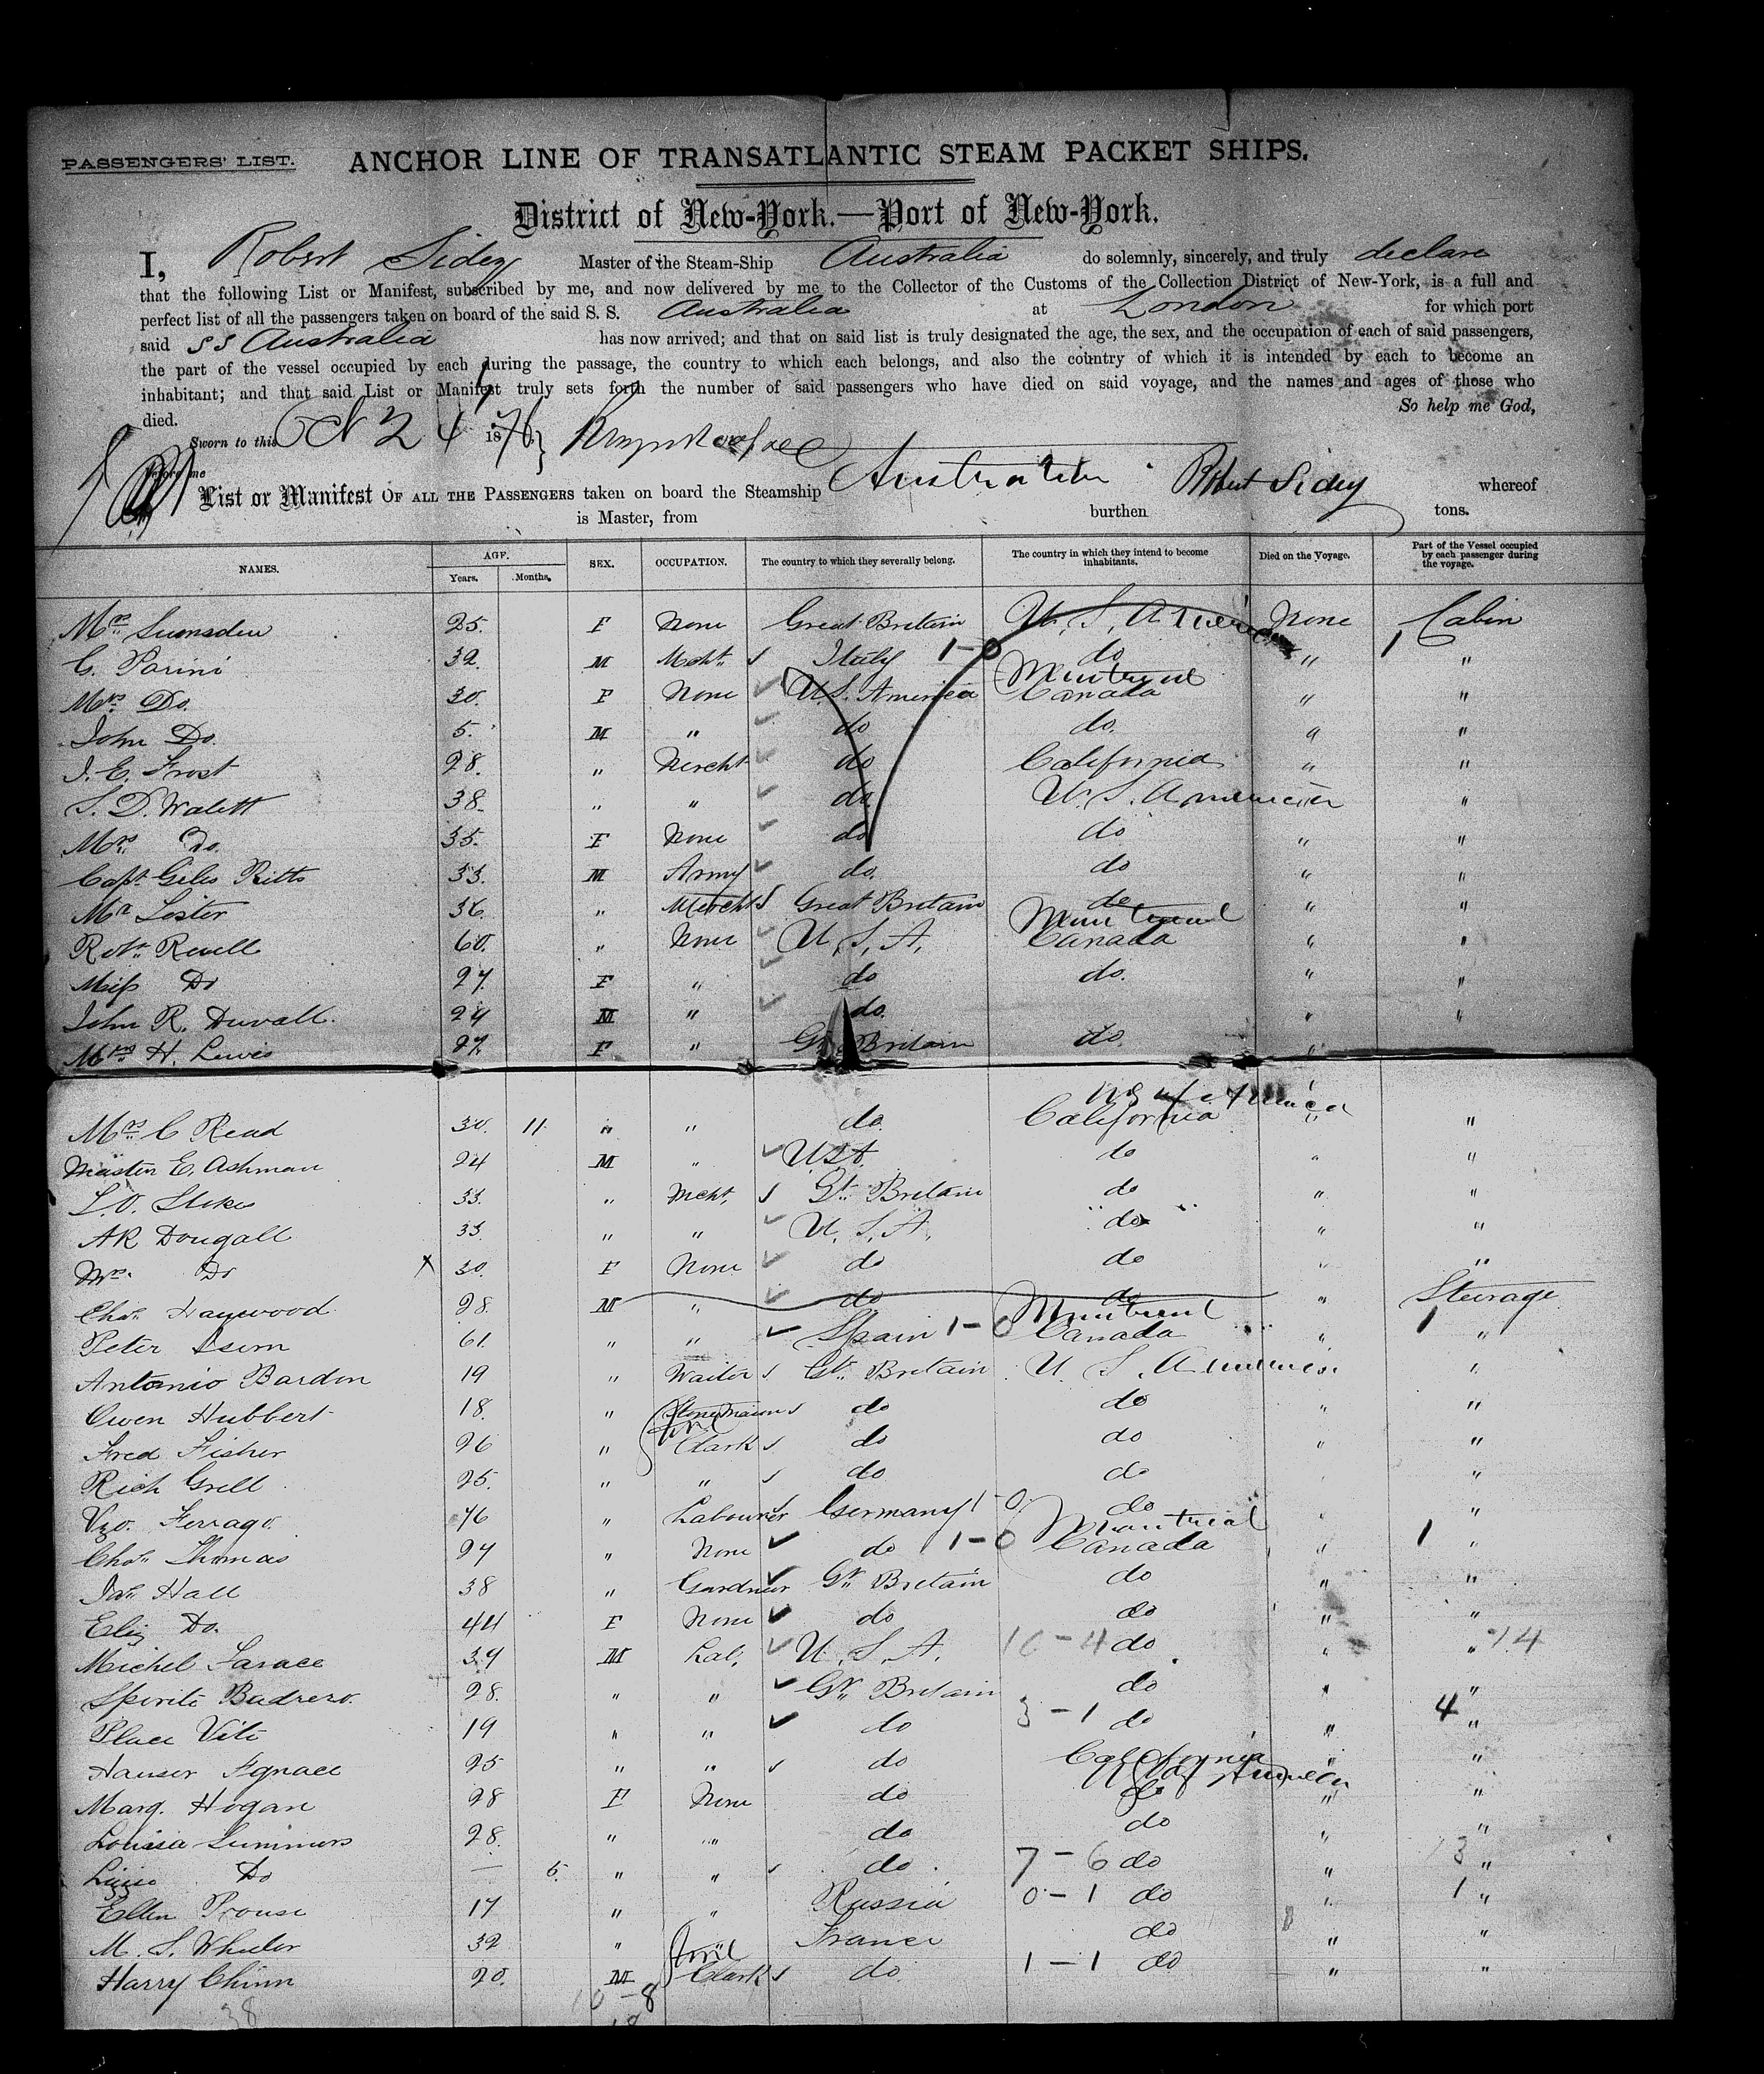 PASSENGERS' LIST. ANCHOR LINE OF TRANSATLANTIC STEAM PACKET SHIPS.
District of New-York.—Port of New-York.
I, Robert Sidey Master of the Steam-Ship Australia do solemnly, sincerely, and truly declare
that the following List or Manifest, subscribed by me, and now delivered by me to the Collector of the Customs of the Collection District of New-York, is a full and
perfect list of all the passengers taken on board of the said S. S. Australia at London for which port
said SS Australia has now arrived; and that on said list is truly designated the age, the sex, and the occupation of each of said passengers,
the part of the vessel occupied by each during the passage, the country to which each belongs, and also the country of which it is intended by each to become an
inhabitant; and that said List or Manifest truly sets forth the number of said passengers who have died on said voyage, and the names and ages of those who
died. So help me God,
Sworn to this N 24 1876
before me
List or Manifest OF ALL THE PASSENGERS taken on board the Steamship Australia Robert Sidey whereof
is Master, from burthen tons.
NAMES. AGE. Years. Months. SEX. OCCUPATION. The country to which they severally belong. The country in which they intend to become inhabitants. Died on the Voyage. Part of the Vessel occupied by each passenger during the voyage.
Mrs Lumsden 25. F None Great Britain U. S. America None Cabin
G. Parini 32. M Mcht. Italy 1-0 do " 1 "
Mrs Do. 30. F None U. S. America Montreal Canada " "
John Do. 5. M " do do. " "
J. E. Frost 28. " Mercht do California " "
S. D. Walett 38. " " do. U. S. America "
Mrs Do. 35. F None do do " "
Capt. Giles Ritts 33. M Army do. do " "
Mr Lister 36. " Mercht Great Britain do " "
Robt. Revell 60. " None U. S. A. Montreal Canada " "
Miss Do 27. F " do do. " "
John R. Duvall. 24 M " do. " "
Mrs H. Lewis 27. F " Gt. Britain do. "
Mrs C Read 30. 11. " " do. California " "
Master E. Ashman 24 M " USA. do " "
L. O. Stokes 33. " Mcht. Gt. Britain do " "
AR Dougall 33. " " U. S. A. do " "
Mrs. Do X 30. F None do do " "
Chas. Haywood 28. M " do do " Steerage
Peter Isern 61. " " Spain 1-0 Montreal Canada " 1 "
Antonio Bardon 19 " Waiter Gt. Britain U. S. America "
Owen Hubbert 18. " Stone Mason do do " "
Fred Fisher 26 " Clark do do " "
Rich Grell 25. " " do do "
Vzo. Ferrago. 46 " Labourer Germany 1-0 do " "
Chas. Thomas 24 " None do 1-0 Montreal Canada " 1 "
Jas. Hall 38 " Gardner Gt. Britain do " "
Eliz Do. 44 F None do do " "
Michel Sarace 39 M Lab. U. S. A. 10-4 do " " 14
Spirite Budrero. 28. " " Gt. Britain do " "
Place Viti 19 " " do 3-1 do " 4 "
Hauser Ignace 25 " " do California " "
Marg. Hogan 28 F None do do " "
Louisa Summers 28. " " do do " "
Lizzie Do — 6. " " do. 7-6 do " 13 "
Ellen Prouse 17 " " Russia 0-1 do " 1 "
M. S. Wheeler 32 " France do " "
Harry Chinn 20. M Clark do. 1-1 do " "
38 10-8